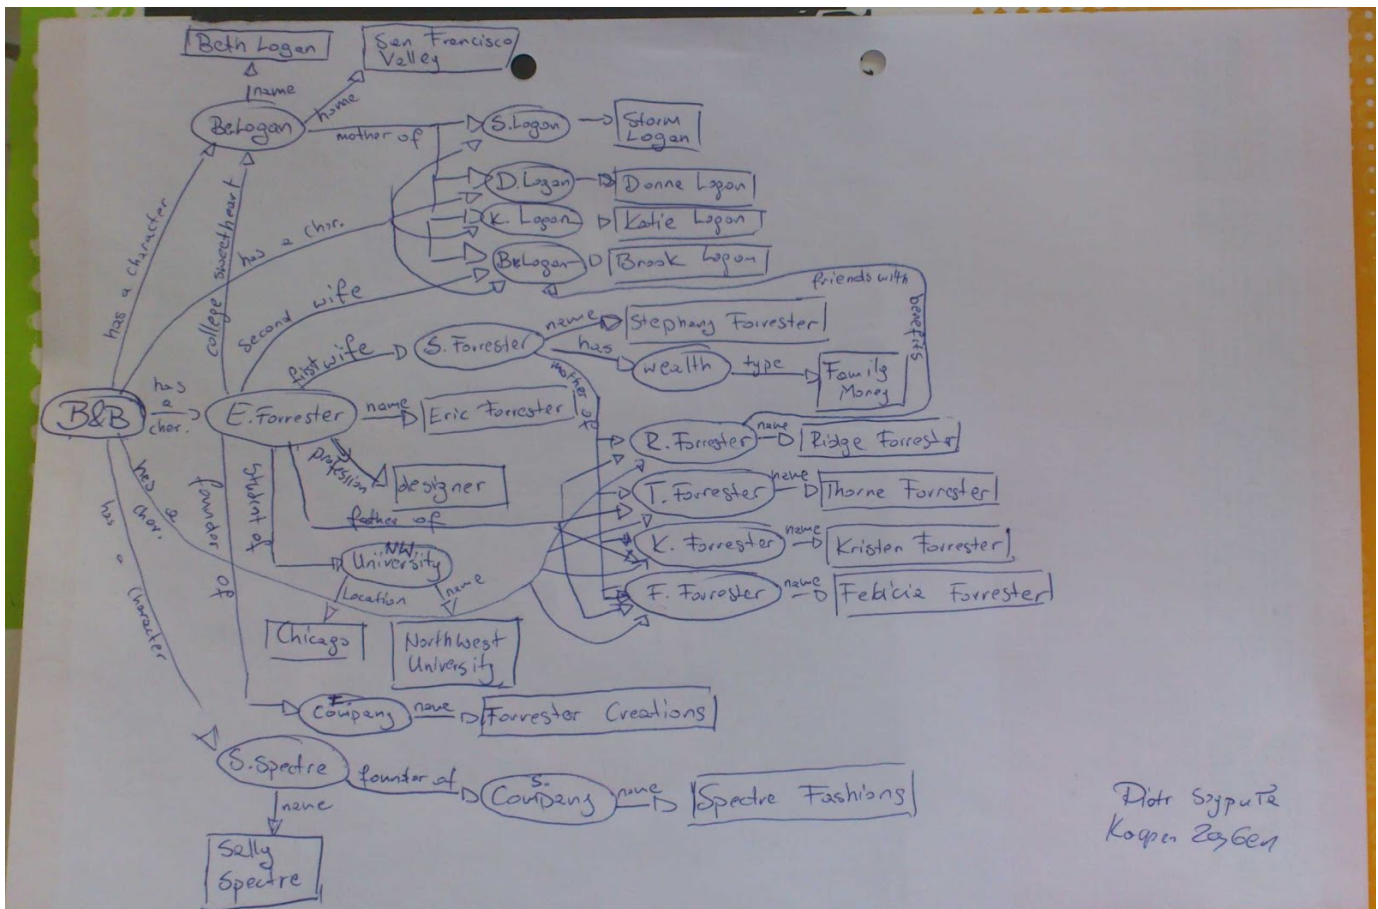 Beth Logan
San Francisco
Valley
name
home
Be.Logan
mother of
S.Logan
Storm
Logan
D.Logan
Donna Logon
K. Logan
Katie Logan
Br.Logan
Brook Logan
has a character
college sweetheart
has a char.
second wife
friends with
benefits
first wife
S. Forrester
name
Stephany Forrester
has
wealth
type
Family
Money
mother of
B&B
has
a
char.
E. Forrester
name
Eric Forrester
profession
designer
R. Forrester
name
Ridge Forrester
T. Forrester
name
Thorne Forrester
father of
K. Forrester
name
Kristen Forrester
F. Forrester
name
Felicia Forrester
has a
char.
has a character
founder of
student of
NW.
University
Location
name
Chicago
Northwest
University
F
Company
name
Forrester Creations
S. Spectre
founder of
S.
Company
name
Spectre Fashions
name
Sally
Spectre
Piotr